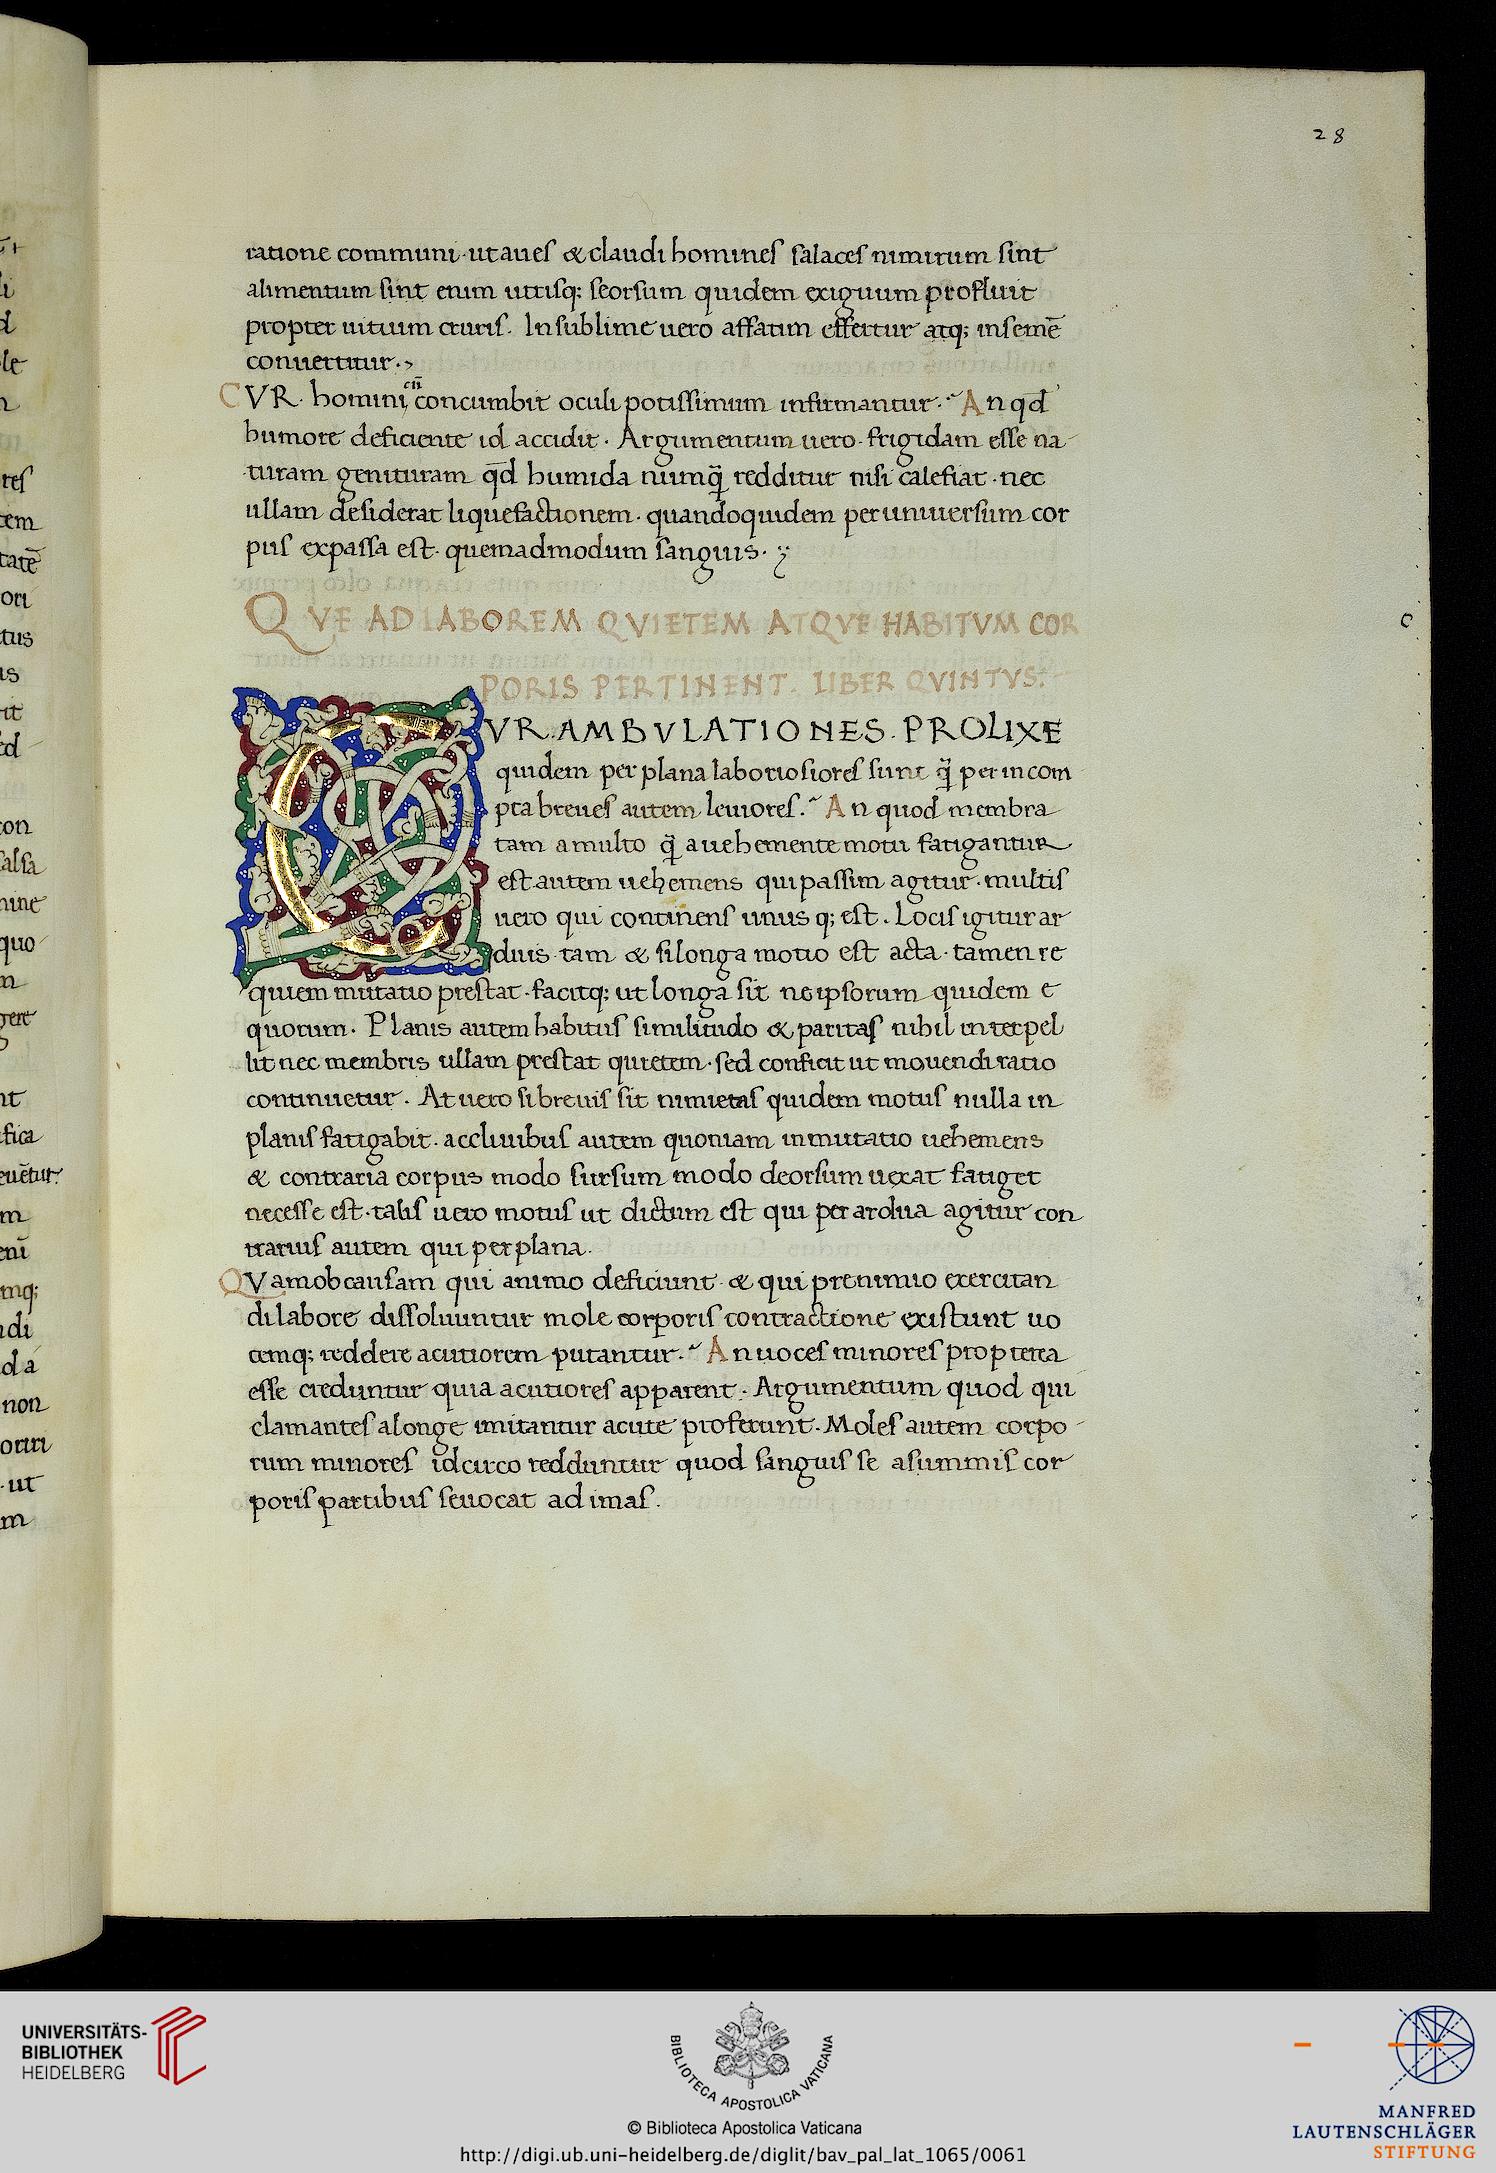 28
ratione communi · ut aues & claudi homines salaces nimirum sint
alimentum sint enim utrisq; seorsum quidem exiguum profluit
propter uitium cruris. In sublime uero affatim effertur atq; in semē
conuertitur.
CVR. homini cū concumbit oculi potissimum infirmantur. An qd̄
humore deficiente id accidit. Argumentum uero frigidam esse na
turam genituram qd̄ humida numq̄ redditur nisi calefiat · nec
ullam desiderat liquefactionem · quandoquidem per uniuersum cor
pus expassa est · quemadmodum sanguis.
QVE AD LABOREM QVIETEM ATQVE HABITVM COR
PORIS PERTINENT. LIBER QVINTVS.
CVR. AMBVLATIONES. PROLIXE
quidem per plana laboriosiores sunt q̄ per incom
pta breues autem leuiores. An quod membra
tam a multo q̄ a uehemente motu fatigantur
est autem uehemens qui passim agitur · multus
uero qui continens unus q; est. Locis igitur ar
duis tam & si longa motio est acta · tamen re
quiem mutatio prestat · facitq; ut longa sit ne ipsorum quidem e
quorum. Planis autem habitus similitudo & paritas nihil interpel
lit nec membris ullam prestat quietem · sed conficit ut mouendi ratio
continuetur. At uero si breuis sit nimietas quidem motus nulla in
planis fatigabit. accliuibus autem quoniam inmutatio uehemens
& contraria corpus modo sursum modo deorsum uexat fatiget
necesse est · talis uero motus ut dictum est qui per ardua agitur con
trarius autem qui per plana.
QVam ob causam qui animo deficiunt & qui pre nimio exercitan
di labore dissoluuntur mole corporis contractione existunt uo
cemq; reddere acutiorem putantur. An uoces minores propterea
esse creduntur quia acutiores apparent. Argumentum quod qui
clamantes a longe imitantur acute proferunt. Moles autem corpo
rum minores idcirco redduntur quod sanguis se a summis cor
poris partibus seuocat ad imas.
c
UNIVERSITÄTS-
BIBLIOTHEK
HEIDELBERG
BIBLIOTECA APOSTOLICA VATICANA
© Biblioteca Apostolica Vaticana
http://digi.ub.uni-heidelberg.de/diglit/bav_pal_lat_1065/0061
MANFRED
LAUTENSCHLÄGER
STIFTUNG